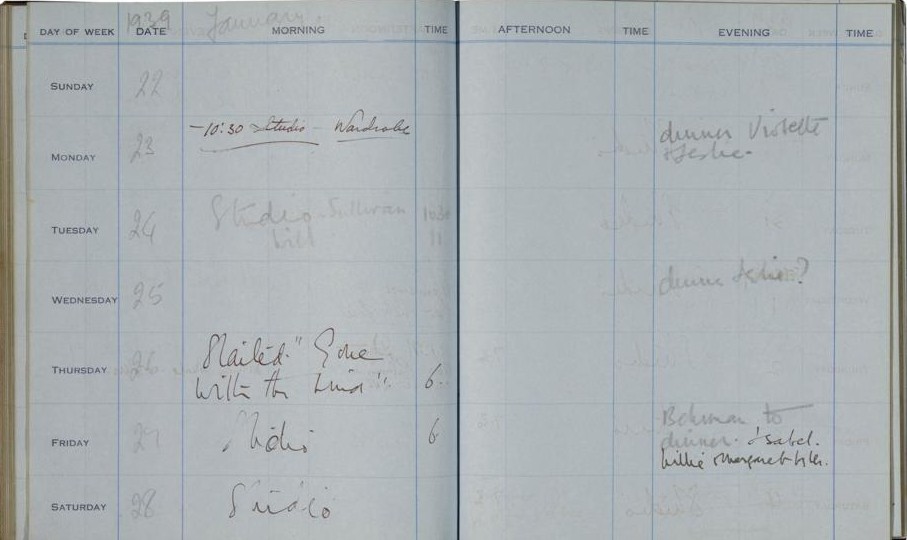 1939 January
DAY OF WEEK DATE MORNING TIME AFTERNOON TIME EVENING TIME
SUNDAY 22
MONDAY 23 -10:30 Studio - Wardrobe dinner Violette
+ Leslie.
TUESDAY 24 Studio. Sullivan 10.30
will 11
WEDNESDAY 25 dinner Leslie?
THURSDAY 26 Started "Gone
With the Wind" 6.
FRIDAY 27 Studio 6 to
dinner. Isabel.
Willie & Margaret
SATURDAY 28 Studio